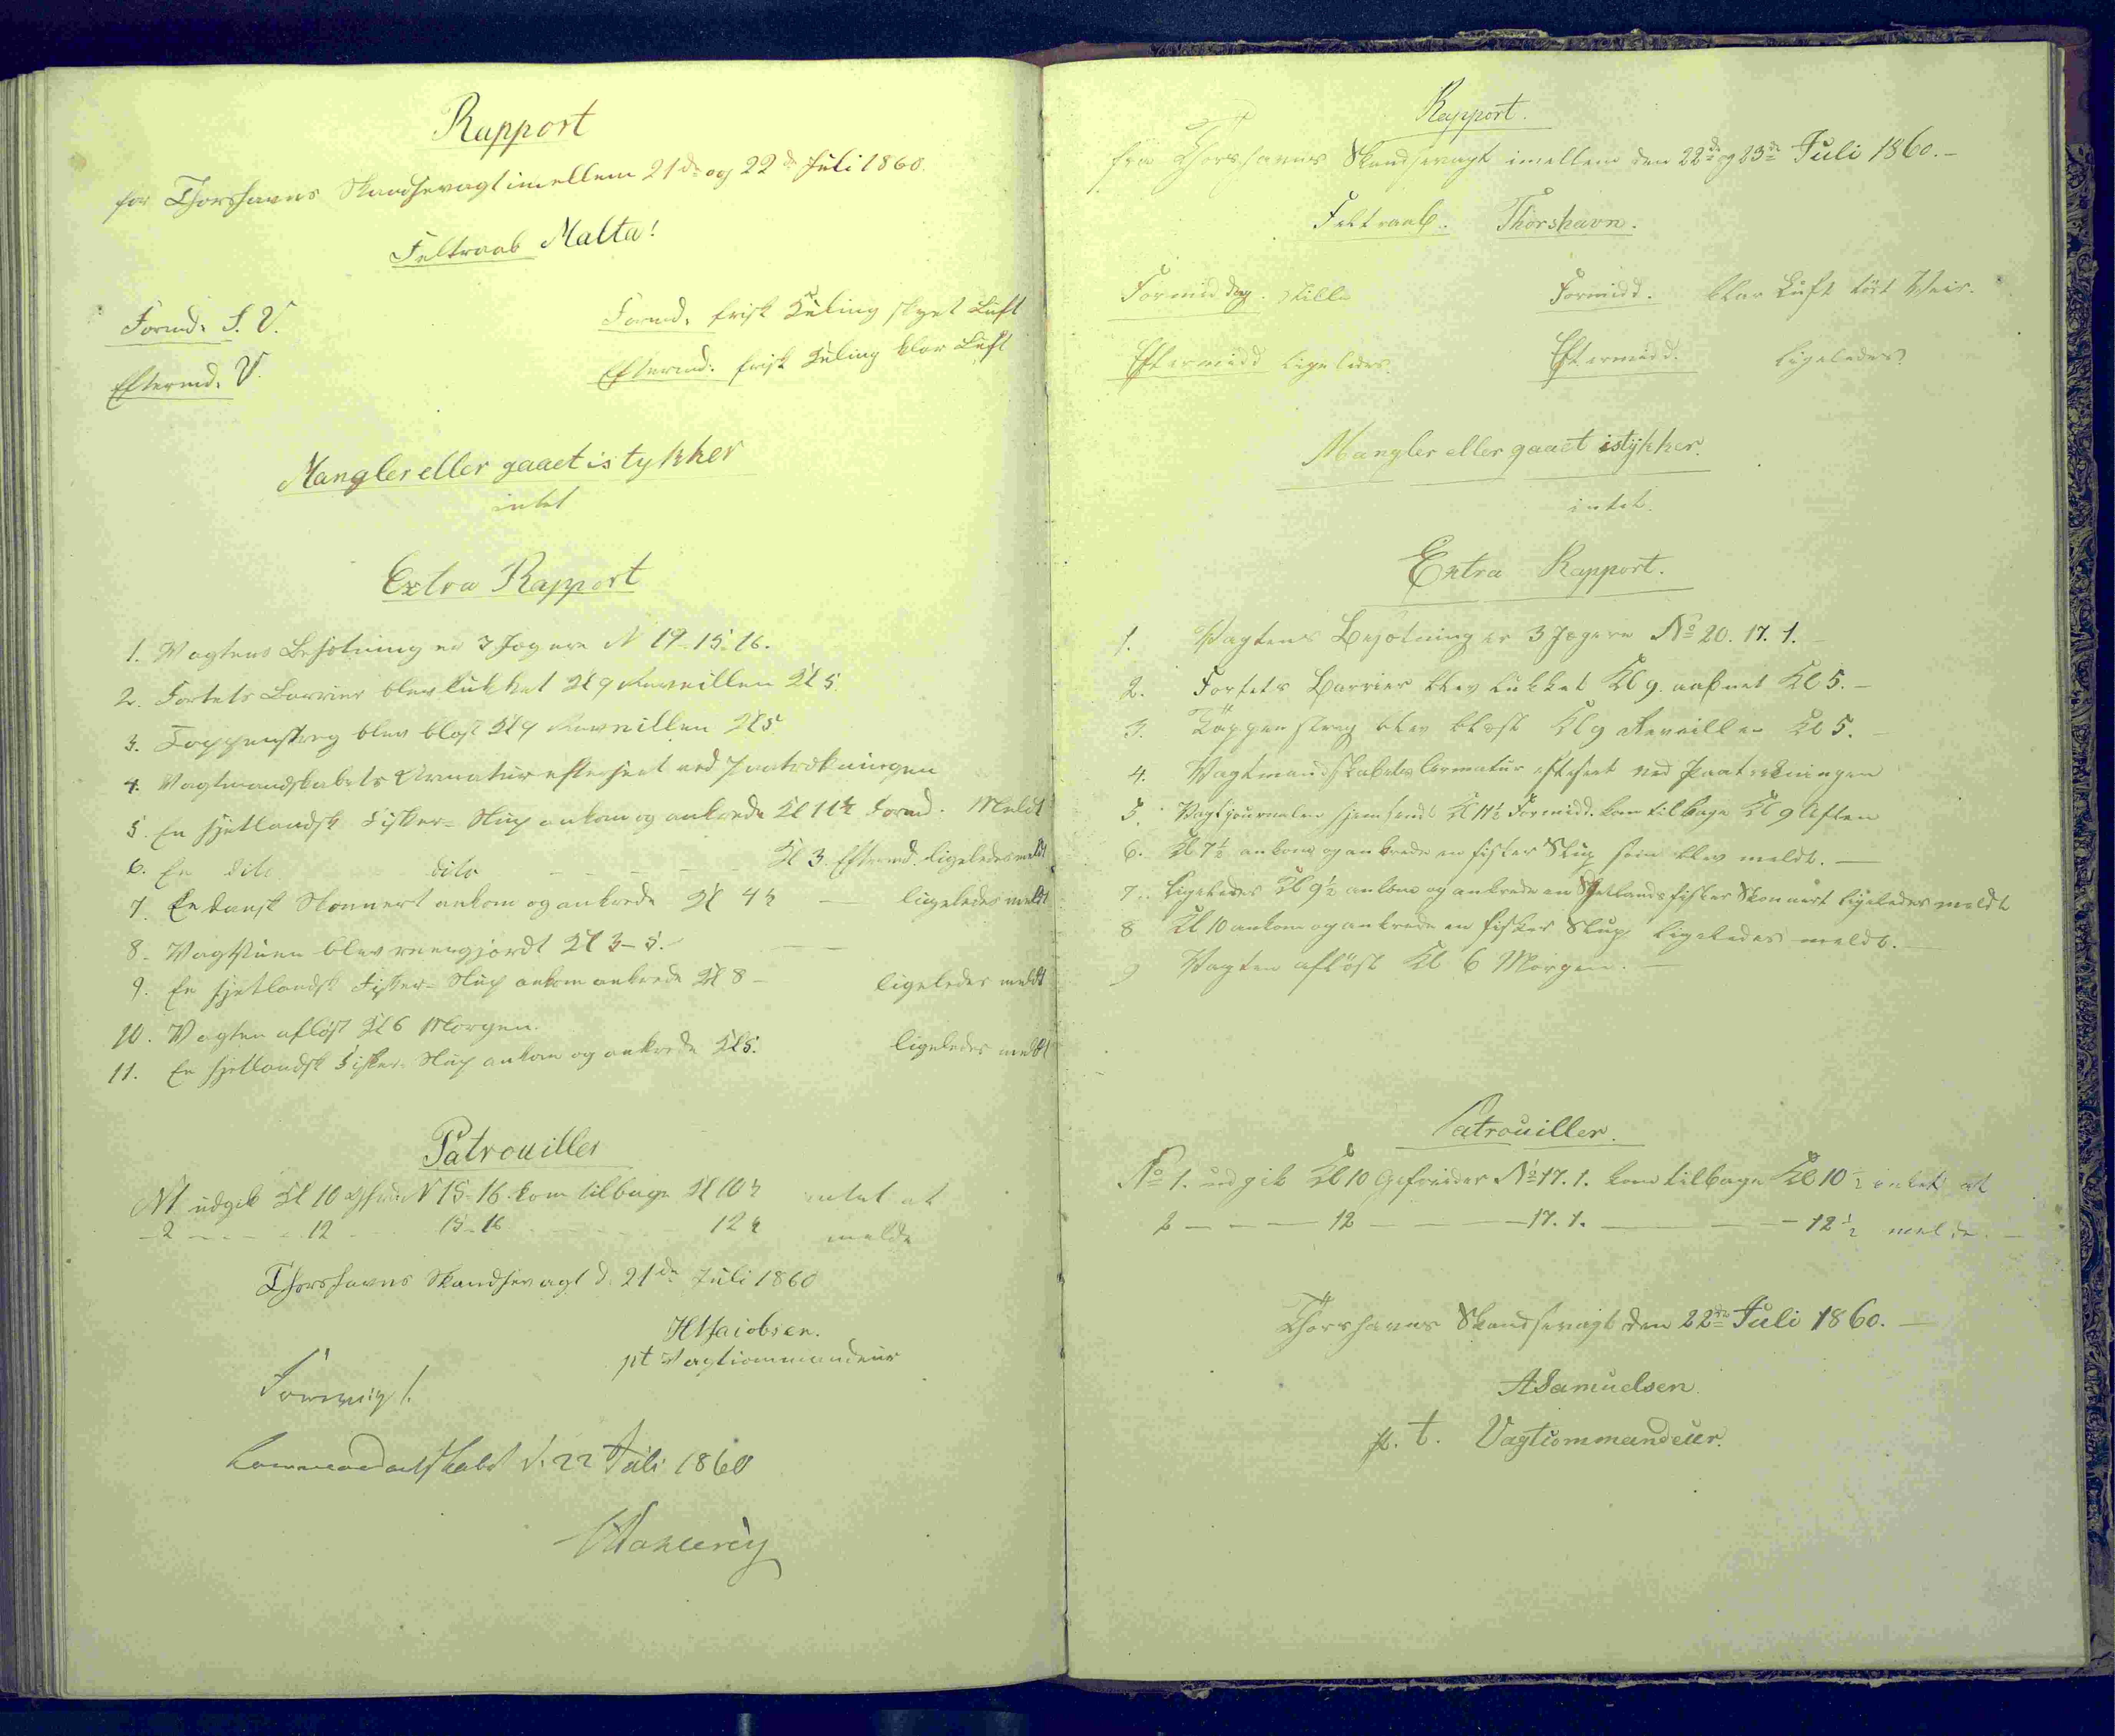 Rapport
for Thorshavns Skandsevagt imellem 21de og 22de Juli 1860.
Feltraab Malta!
Formd. S. V. Formd. frisk Kuling skyet Luft
Eftermd. V. Eftermd. frisk Kuling klar Luft
Mangler eller gaaet istykker
intet
Extra Rapport
1. Vagtens Besætning er 3 Jægere N 19-15-16.
2. Fortets Barrier blev lukket Kl 9 Reveillen Kl 5.
3. Tappenstreg blev blæst Kl 9 Reveillen Kl 5.
4. Vagtmandskabets Armatur efterseet ved Paatrækningen
5. En hjetlandsk Fisker-Slup ankom og ankrede Kl 11½ Formd. Meldt
6. En dito dito Kl 3. Eftermd. ligeledes meldt
7. En dansk Skonnert ankom og ankrede Kl 4½ — ligeledes meldt
8. Vagtstuen blev reengjordt Kl 3-5. — —
9. En hjetlandsk Fisker-Slup ankom ankrede Kl 8 — ligeledes meldt
10. Vagten afløst Kl 6 Morgen.
11. En hjetlandsk Fisker-Slup ankom og ankrede Kl 5. ligeledes meldt
Patrouiller
N1 udgik Kl 10 N 15-16. kom tilbage Kl 10½ intet at
- 2 - - - 12 15-16 12½ melde
Thorshavns Skandsevagt d. 21de Juli 1860
HJacobsen.
pt Vagtcommandeur
Forevist.
Commandantskabet d. 22 Juli 1860
Rapport.
fra Thorshavns Skandsevagt imellem den 22de og 23de Juli 1860.-
Feltraab. Thorshavn.
Formiddag. Stille Formidd. klar Luft tört Veir.
Eftermidd ligeledes. Eftermidd. ligeledes
Mangler eller gaaet istykker.
intet.
Extra Rapport.
1. Vagtens Besætning er 3 Jægere No 20. 17. 1.
2. Fortets Barrier blev lukket Kl 9. aabnet Kl 5. -
3. Tappenstreg blev blæst Kl 9 Reveillen Kl 5. -
4. Vagtmandskabets Armatur efterseet ved Paatrækningen
5. Vagtjournalen hjemsendt Kl 11½ Formidd. kom tilbage Kl 9 Aften
6. Kl 7½ ankom og ankrede en fisker Slup som blev meldt. —
7. Ligeledes Kl 9½ ankom og ankrede en Hjetlands fisker Skonnert ligeledes meldt
8 Kl 10 ankom og ankrede en fisker Slup ligeledes meldt. -
9 Vagten aflöst Kl 6 Morgen. -
Patrouiller.
No 1. udgik Kl 10 Gefreider No 17. 1. kom tilbage Kl 10½ intet at
2 — — — 12 — — 17. 1. — — — 12½ melde. -
Thorshavns Skandsevagt den 22de Juli 1860. -
ASamuelsen.
p. t. Vagtcommandeur.